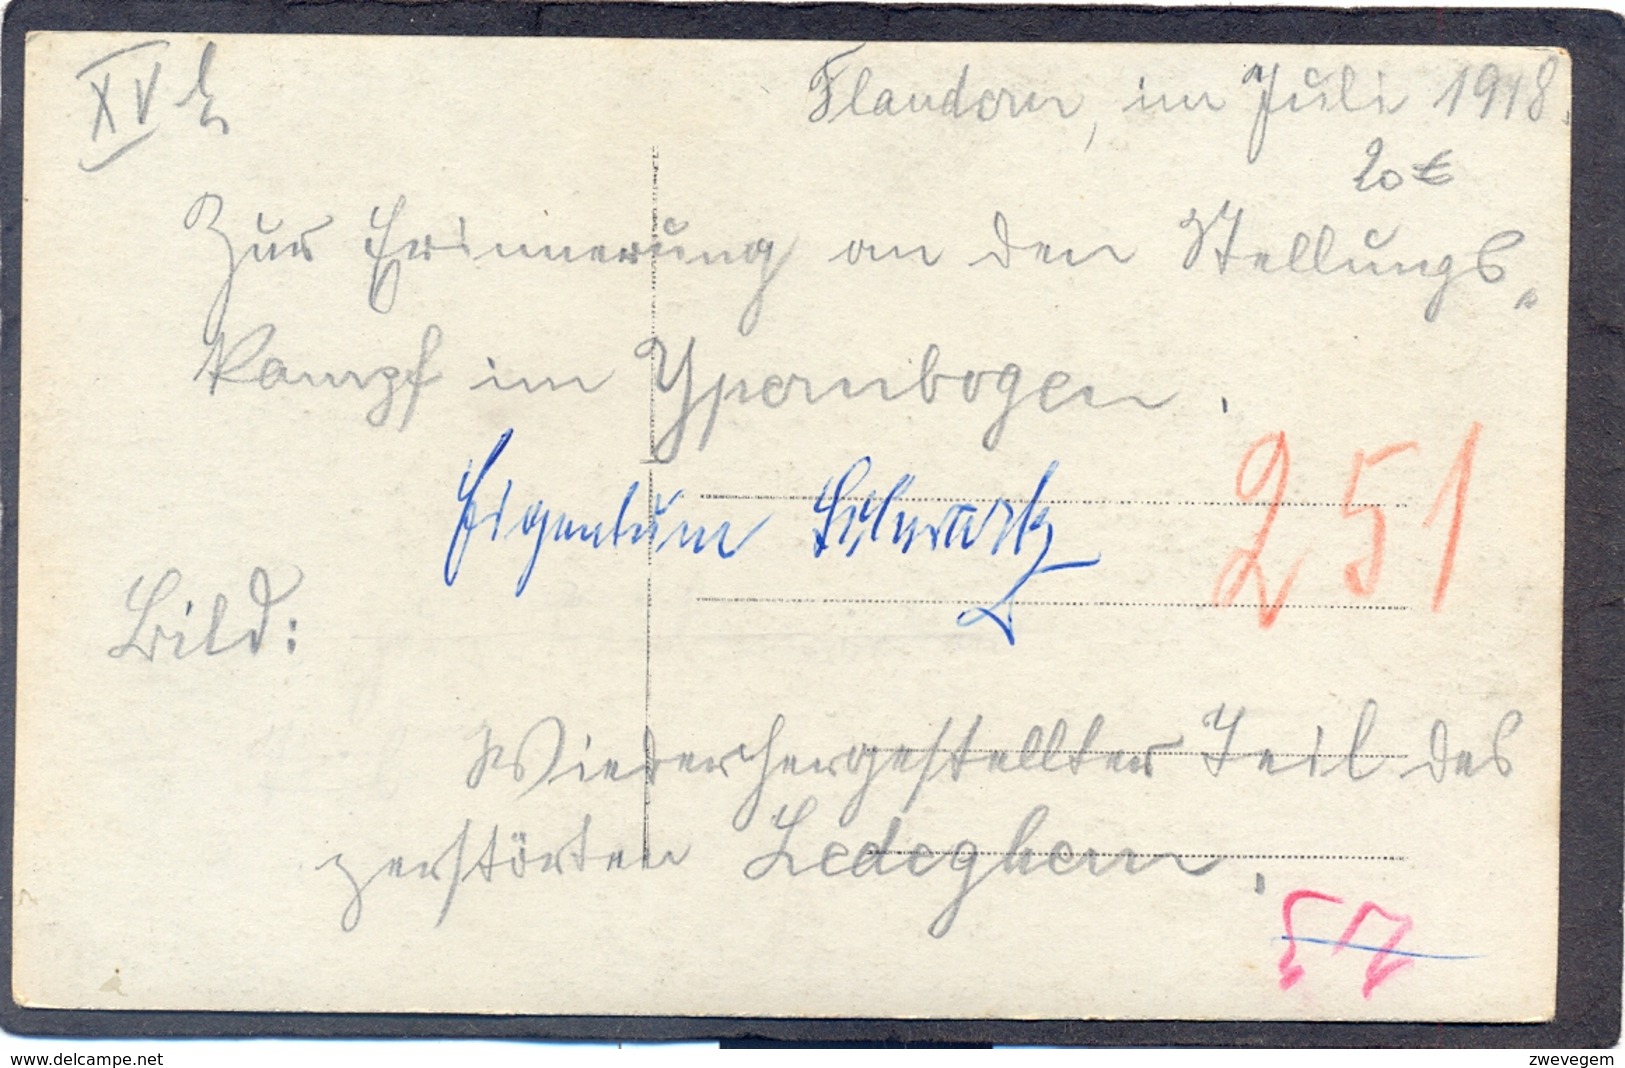 XV b
Flandern, im Juli 1918.
20 €
Zur Erinnerung an den Stellungs-
kampf im Ypernbogen.
Eigentum Schwartz
251
Bild:
Wiederhergestellter Teil des
zerstörten Ledeghem.
57
www.delcampe.net
zwevegem